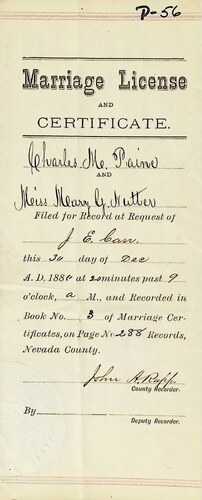 P-56
Marriage License
AND
CERTIFICATE.
Charles M. Paine
AND
Miss Mary G. Nutter
Filed for Record at Request of
J. E. Carr.
this 30 day of Dec
A. D. 188 at 20 minutes past 9
o'clock, a M., and Recorded in
Book No. 3 of Marriage Cer-
tificates, on Page No. 288 Records,
Nevada County.
John A. Rapp.
County Recorder.
By
Deputy Recorder.